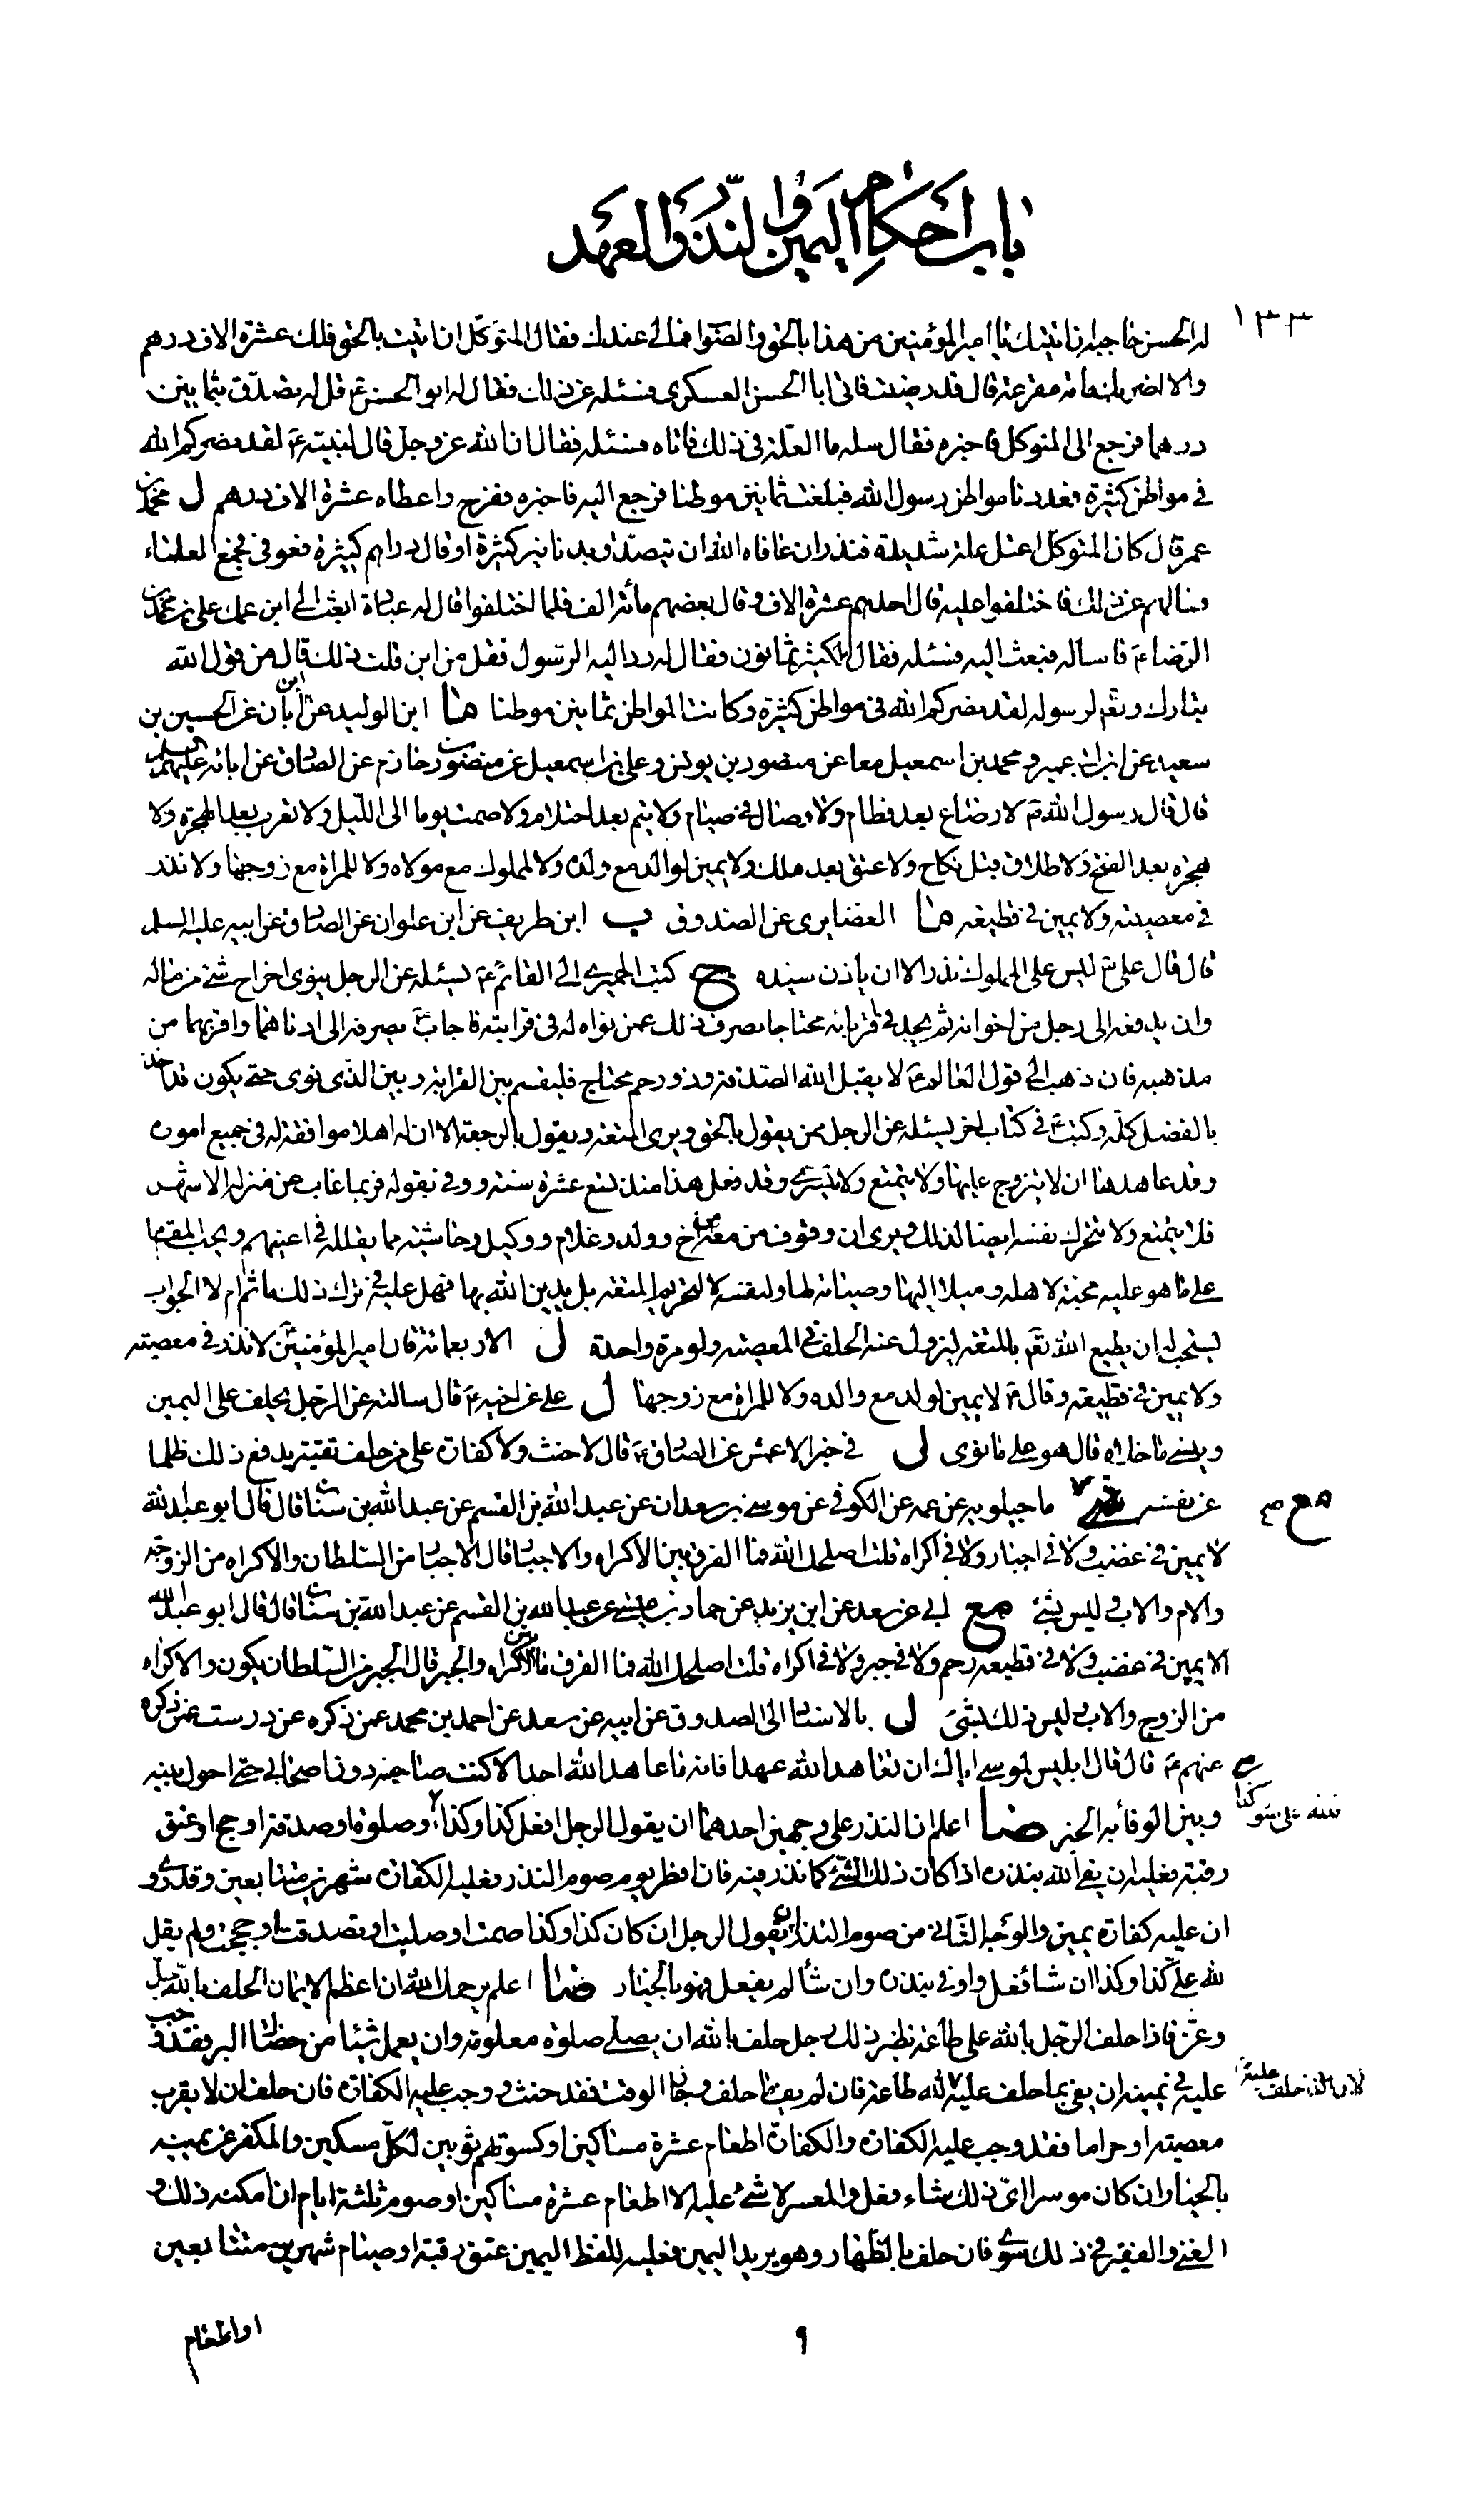 باب احكام اليمين والنذر والعهد
١٣٣
له الحسن حاجبه ان اتيتك يا امير المؤمنين من هذا بالحق والصواب فمالي عندك فقال المتوكل ان اتيت بالحق فلك عشرة الاف درهم
والا اضربك مائة مقرعة قال قد رضيت فاتى ابا الحسن العسكرى فسئله عن ذلك فقال له ابو الحسن ع قل له يتصدق بثمانين
درهما فرجع الى المتوكل فاخبره فقال سله ما العلة في ذلك فاتاه فسئله فقال ان الله عز وجل قال لنبيه ص لقد نصركم الله
في مواطن كثيرة فعددنا مواطن رسول الله فبلغت ثمانين موطنا فرجع اليه فاخبره ففرح واعطاه عشرة الاف درهم ل محمد بن
عمر قال كان المتوكل اعتل علة شديدة فنذر ان عافاه الله ان يتصدق بدنانير كثيرة او قال دراهم كثيرة فعوفي فجمع العلماء
فسالهم عن ذلك فاختلفوا عليه قال احدهم عشرة الاف وقال بعضهم مائة الف فلما اختلفوا قال له عبادة ابعث الى ابن عمك علي بن محمد بن
الرضا ع فاساله فبعث اليه فسئله فقال الكثير ثمانون فقال له رد اليه الرسول فقل من اين قلت ذلك قال من قول الله
تبارك وتع لرسوله لقد نصركم الله في مواطن كثيرة وكانت المواطن ثمانين موطنا ما ابن الوليد عن ابن ابان عن الحسين بن
سعيد عن ابن ابي عمير ومحمد بن اسمعيل معا عن منصور بن يونس وعلي بن اسمعيل عن منصور بن حازم عن الصادق عن ابائه عليهم السلم
قال قال رسول الله ص لا رضاع بعد فطام ولا وصال في صيام ولا يتم بعد احتلام ولا صمت يوما الى الليل ولا تعرب بعد الهجرة ولا
هجرة بعد الفتح ولا طلاق قبل نكاح ولا عتق بعد ملك ولا يمين لوالد مع ولده ولا لمملوك مع مولاه ولا للمراة مع زوجها ولا نذر
في معصية ولا يمين في قطيعة ما الغضايرى عن الصدوق ب ابن طريف عن ابن علوان عن الصادق عن ابيه عليه السلم
قال قال علي ع ليس على المملوك نذر الا ان ياذن سيده ج كتب الحميرى الى القائم ع يسئله عن الرجل ينوى اخراج شئ من ماله
وان يدفعه الى رجل من اخوانه ثم يجد في اقربائه محتاجا يصرف ذلك عمن نواه له في قرابته فاجاب ع يصرفه الى ادناهما واقربهما من
مذهبه فان ذهب الى قول العالم ع لا يقبل الله الصدقة وذو رحم محتاج فليقسم بين القرابة وبين الذى نوى حتى يكون قد اخذ
بالفضل كله وكتب ع في كتاب اخر يسئله عن الرجل ممن يقول بالحق ويرى المتعة ويقول بالرجعة الا ان له اهلا موافقة له في جميع اموره
وقد عاهدها ان لا يتزوج عليها ولا يتمتع ولا يتسرى وقد فعل هذا منذ تسع عشرة سنة ووفى بقوله فربما غاب عن منزله الاشهر
فلا يتمتع ولا تتحرك نفسه ايضا لذلك ويرى ان وقوف من معه من اخ وولد وغلام ووكيل وحاشية مما يقلله في اعينهم ويحب المقام
على ما هو عليه محبة لاهله وميلا اليها وصيانة لها ولنفسه لا لتحريم المتعة بل يدين الله بها فهل عليه في ترك ذلك ماثم ام لا الجواب
يستحب له ان يطيع الله تع بالمتعة ليزول عنه الحلف في المعصية ولو مرة واحدة ل الاربعمائة قال امير المؤمنين ع لا نذر في معصية
ولا يمين في قطيعة وقال ع لا يمين لولد مع والده ولا للمراة مع زوجها ل علي عن اخيه ع قال سالته عن الرجل يحلف على اليمين
وينسى ما حاله قال هو على ما نوى ل في خبر الاعمش عن الصادق ع قال لا حنث ولا كفارة على من حلف تقية يدفع ذلك ظلما
عن نفسه ماجيلويه عن عمه عن الكوفي عن موسى بن سعدان عن عبد الله بن القسم عن عبد الله بن سنان قال قال ابو عبد الله
مع
لا يمين في غضب ولا في اجبار ولا في اكراه قلت اصلحك الله فما الفرق بين الاكراه والاجبار قال الاجبار من السلطان والاكراه من الزوجة
والام والاب وليس بشئ مع ابي عن سعد عن ابن يزيد عن حماد بن عيسى عن عبد الله بن القسم عن عبد الله بن سنان قال قال ابو عبد الله
لا يمين في غضب ولا في قطيعة رحم ولا في جبر ولا في اكراه قلت اصلحك الله فما الفرق ما بين الاكراه والجبر قال الجبر من السلطان يكون والاكراه
من الزوج والاب وليس ذلك بشئ ل بالاسناد الى الصدوق عن ابيه عن سعد عن احمد بن محمد عمن ذكره عن درست عمن ذكره
عنهم ع قال قال ابليس لموسى اياك ان تعاهد الله عهدا فانه ما عاهد الله احد الا كنت صاحبه دون اصحابي حتى احول بينه
وبين الوفاء به الخبر ضا اعلم ان النذر على وجهين احدهما ان يقول الرجل افعل كذا وكذا وصلوة او صدقة او حج او عتق
رقبة فعليه ان يفى لله بنذره اذا كان ذلك الشئ كما نذر فيه فان افطر يوم صوم النذر فعليه الكفارة شهرين متتابعين وقد روى
ان عليه كفارة يمين والوجه الثاني من صوم النذر ان يقول الرجل ان كان كذا وكذا صمت او صليت او تصدقت او حججت ولم يقل
لله علي كذا وكذا ان شاء فعل واوفى بنذره وان شاء لم يفعل فهو بالخيار ضا اعلم يرحمك الله ان اعظم الايمان الحلف بالله جل
وعز فاذا حلف الرجل بالله على طاعة نظير ذلك رجل حلف بالله ان يصلي صلوة معلومة وان يعمل شيئا من خصال البر فقد وجب
عليه في يمينه ان يفى بما حلف عليه لله طاعة فان لم يف بما حلف وجاز الوقت فقد حنث ووجب عليه الكفارة فان حلف ان لا يقرب
لان الذى حلف عليه
معصية او حراما فقد وجب عليه الكفارة والكفارة اطعام عشرة مساكين او كسوتهم ثوبين لكل مسكين والمكفر عن يمينه
بالخيار ان كان موسرا اى ذلك شاء فعل والمعسر لا شئ عليه الا اطعام عشرة مساكين او صوم ثلثة ايام ان امكنه ذلك و
الغنى والفقير في ذلك سوى فان حلف بالظهار وهو يريد اليمين فعليه للفظ اليمين عتق رقبة او صيام شهرين متتابعين
او اطعام
٩